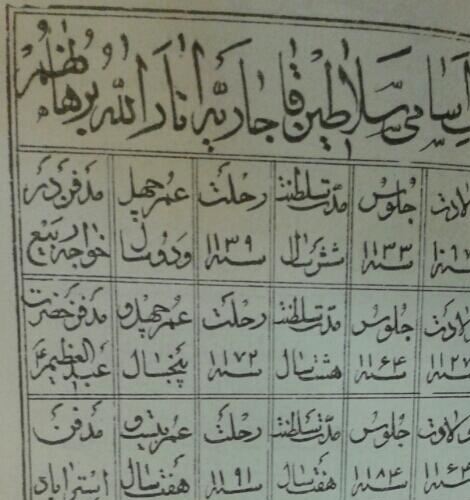 اسامی سلاطین قاجاریه انار الله برهانهم
ولادت جلوس مدت سلطنت رحلت عمر چهل مدفن در
۱۰۹۷ سنه ۱۱۳۳ شش سال سنه ۱۱۳۹ ودو سال خواجه ربیع
ولادت جلوس مدت سلطنت رحلت عمر چهل و مدفن حضرت
۱۱۲۷ سنه ۱۱۶۴ هشت سال سنه ۱۱۷۲ پنج سال عبد العظیم
ولادت جلوس مدت سلطنت رحلت عمر بیست و مدفن
۱۱۶۴ سنه ۱۱۸۴ هفت سال سنه ۱۱۹۱ هفت سال استراباد